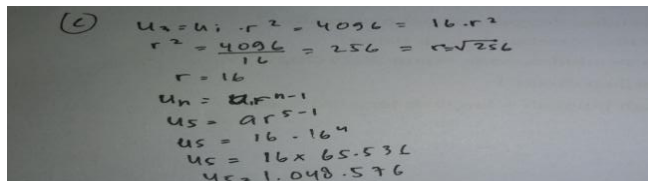 (c) U₃ = U₁ · r² = 4096 = 16 · r²
r² = 4096/16 = 256 = r = √256
r = 16
Un = a.rⁿ⁻¹
U5 = ar⁵⁻¹
U5 = 16 · 16⁴
U5 = 16 × 65.536
U5 = 1.048.576